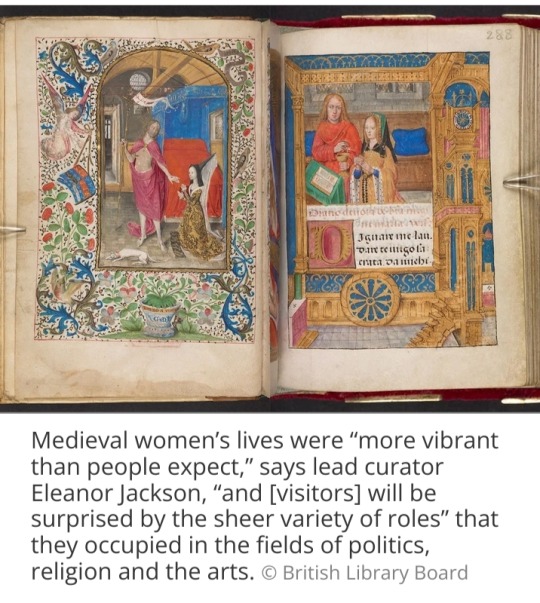 288
Dignare me lau.
dare te virgo sa
crata. Da michi
Medieval women's lives were “more vibrant
than people expect,” says lead curator
Eleanor Jackson, “and [visitors] will be
surprised by the sheer variety of roles” that
they occupied in the fields of politics,
religion and the arts. © British Library Board